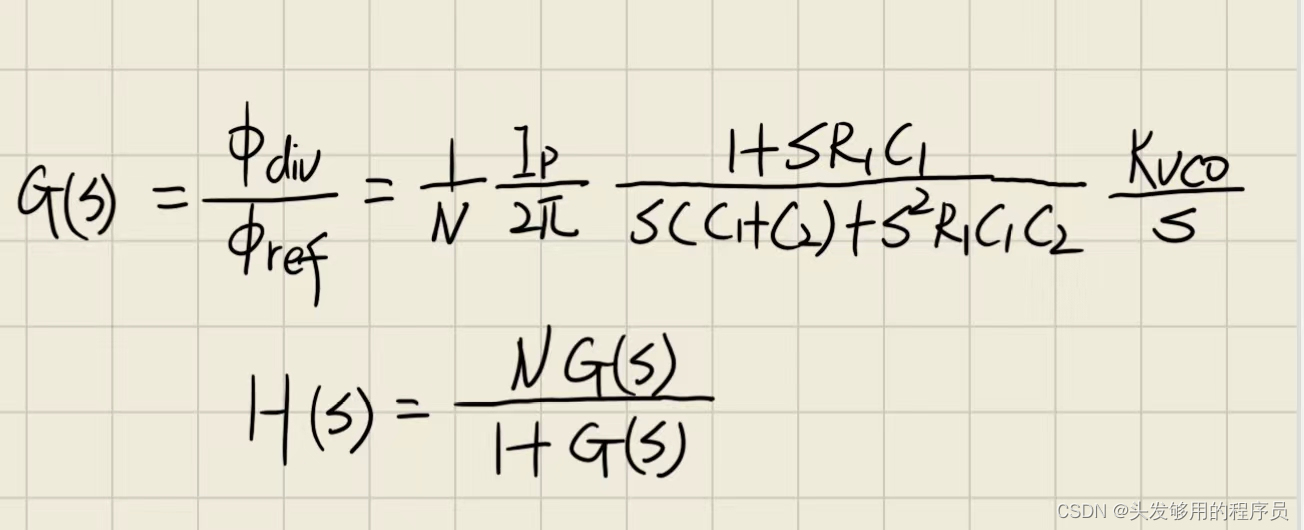 G(s) = ϕdiv/ϕref = 1/N Ip/2π (1+SR₁C₁)/(S(C₁+C₂)+S²R₁C₁C₂) Kvco/S
H(s) = NG(s)/(1+G(s))
CSDN @头发够用的程序员